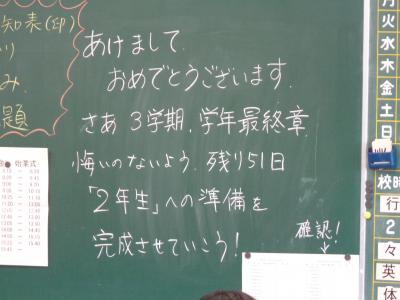 知表(印)
り
み.
題
あけまして.
おめでとうございます.
さあ 3学期. 学年最終章.
悔いのないよう. 残り51日
「2年生」への準備を
完成させていこう!
確認!
始業式
月
火
水
木
金
土
日
校時
行
2
々
英
体